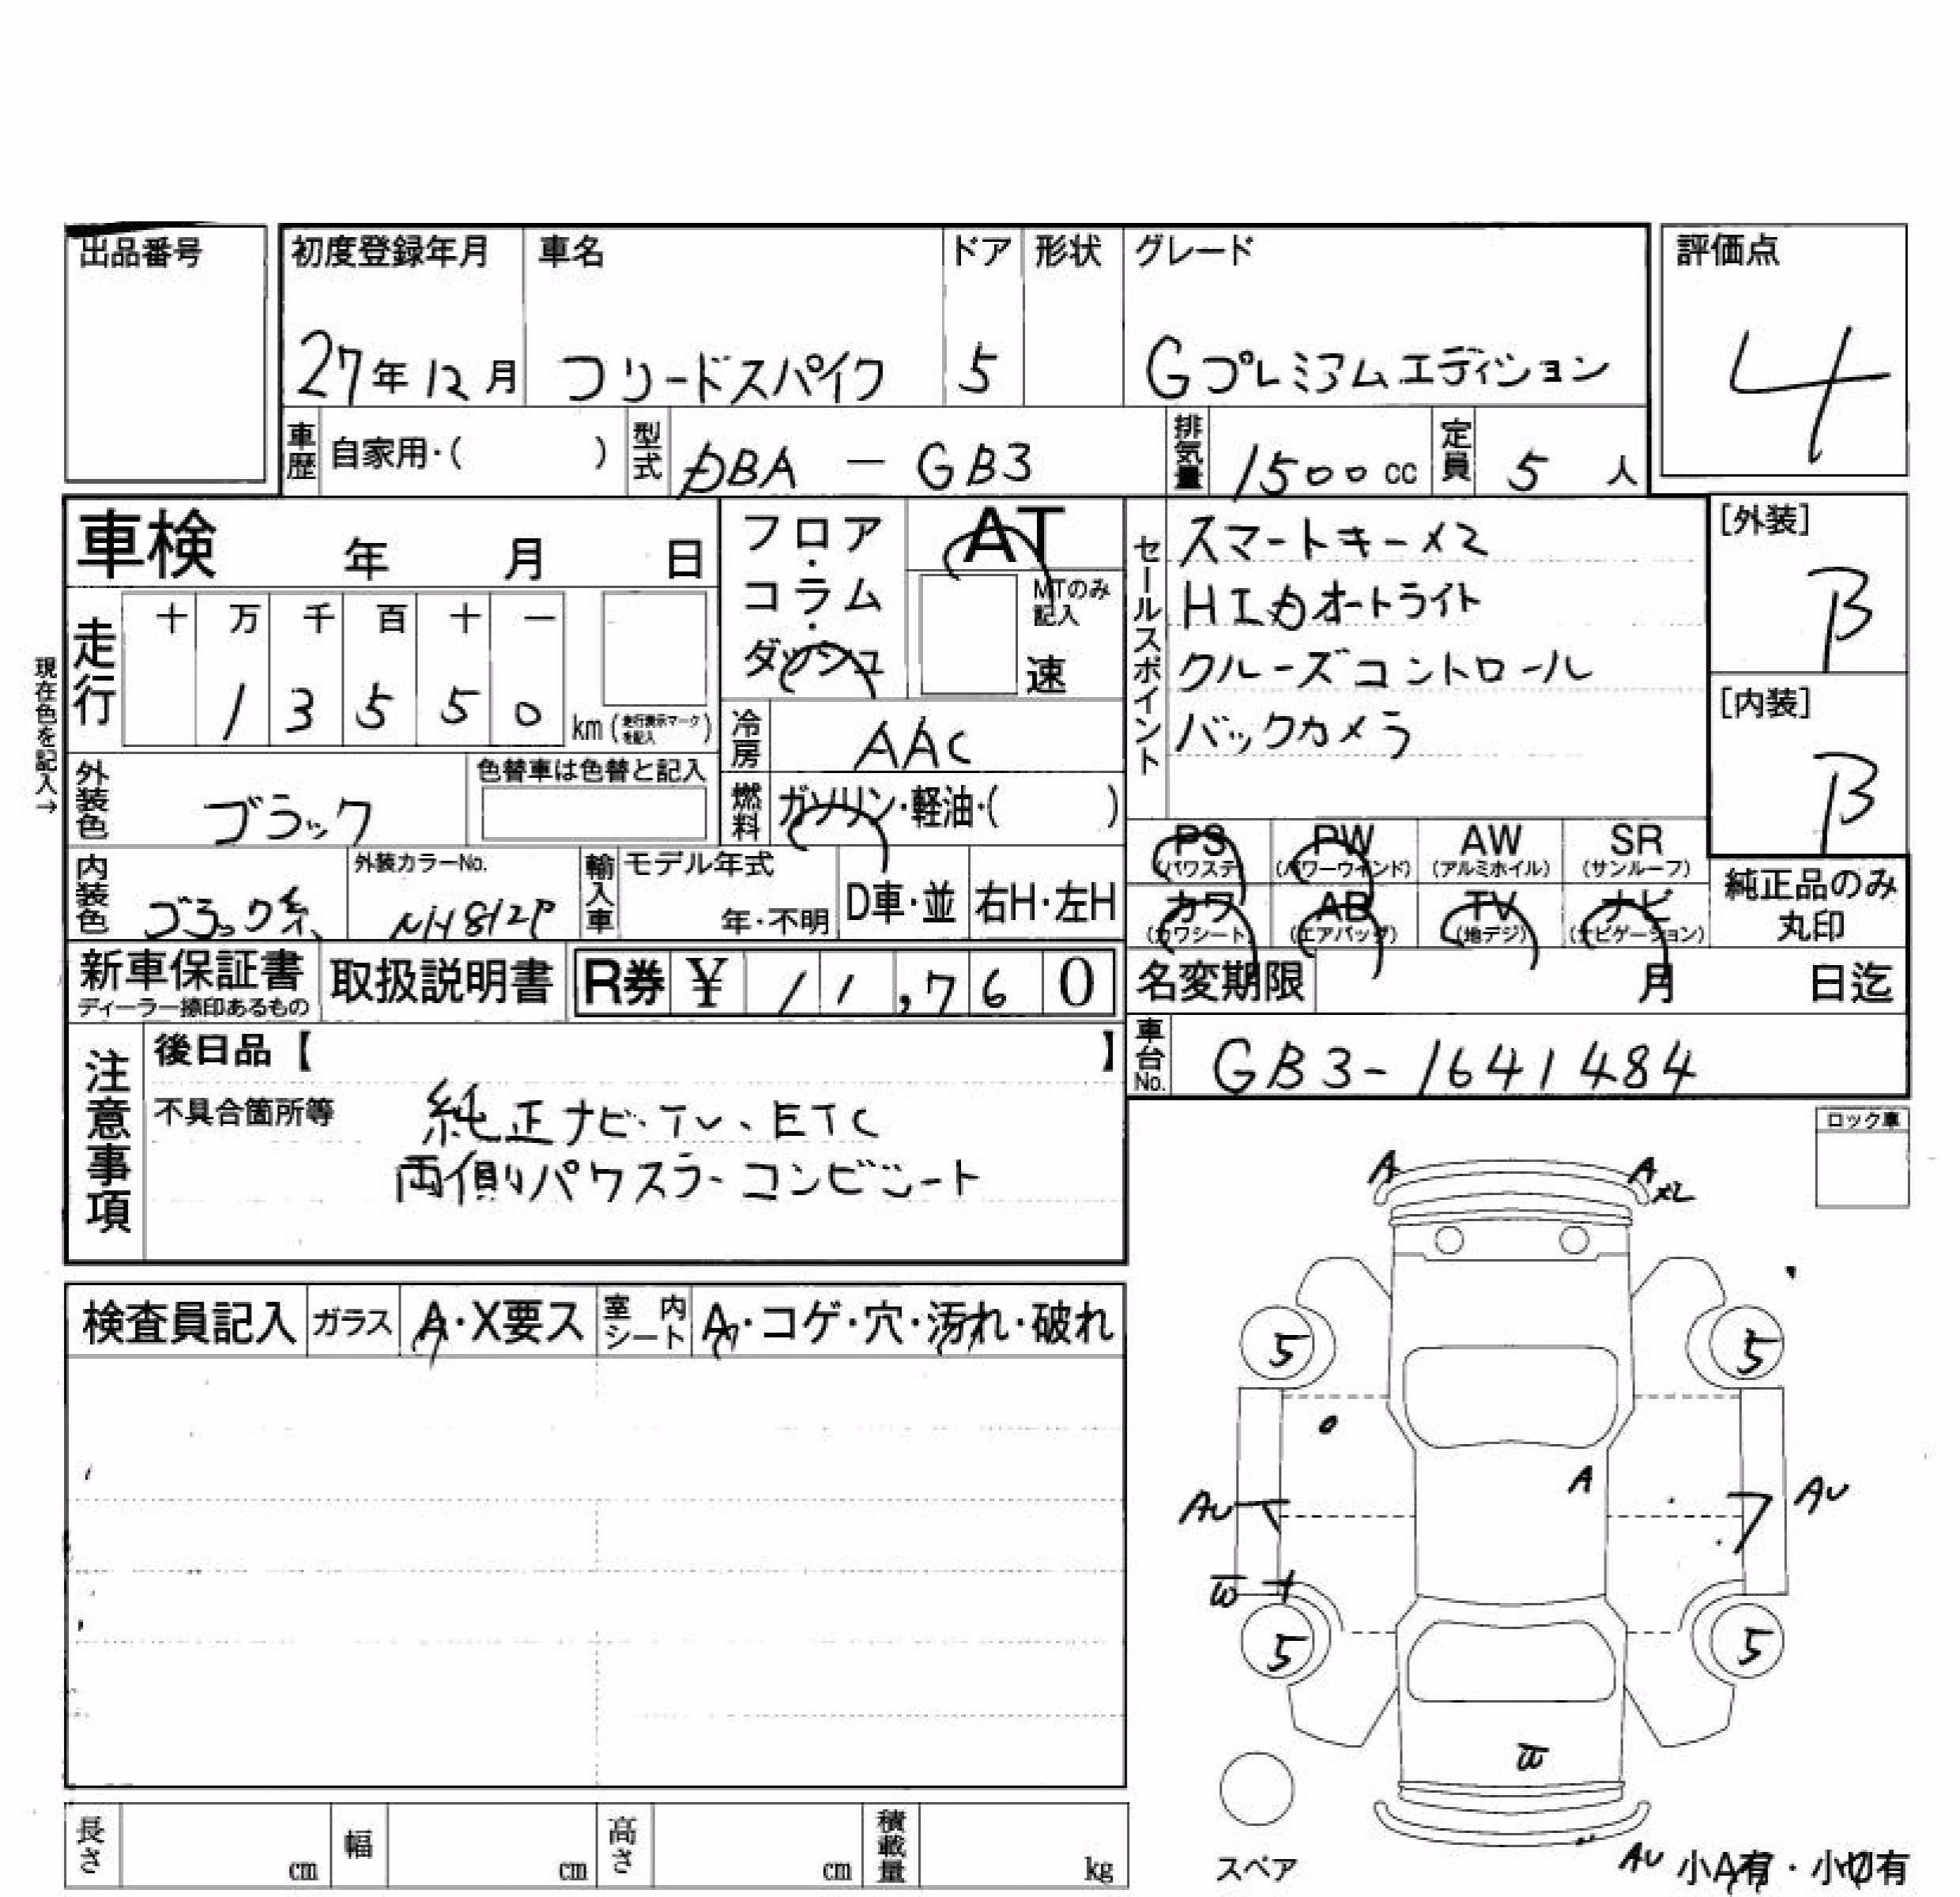 出品番号
初度登録年月 車名 ドア 形状 グレード 評価点
27年12月 フリードスパイク 5 Gプレミアムエディション 4
車歴 自家用・( ) 型式 DBA - GB3 排気量 1500cc 定員 5人
車検 年 月 日
フロア・コラム・ダッシュ
AT
MTのみ記入
速
セールスポイント
スマートキー×2
HIDオートライト
クルーズコントロール
バックカメラ
[外装]
B
[内装]
B
現在色を記入→
走行
十 万 千 百 十 一
1 3 5 5 0 km (走行表示マークを記入)
冷房 AAC
外装色 ブラック 色替車は色替と記入
燃料 ガソリン・軽油・( )
内装色 ブラック系 外装カラーNo. NH812P
輸入車 モデル年式 年・不明 D車・並 右H・左H
PS (パワステ) PW (パワーウィンド) AW (アルミホイル) SR (サンルーフ)
カワ (カワシート) AB (エアバッグ) TV (地デジ) ナビ (ナビゲーション)
純正品のみ丸印
新車保証書 ディーラー捺印あるもの 取扱説明書 R券 ¥ 11,760
名変期限 月 日迄
車台No. GB3-1641484
注意事項
後日品【 】
不具合箇所等 純正ナビ・TV、ETC
両側パワスラ-コンビシート
ロック車
A A x2
検査員記入 ガラス A・X要ス 室内シート A・コゲ・穴・汚れ・破れ
5 5
A
AU AU
W
5 5
W
スペア
AU 小A有・小U有
長さ cm 幅 cm 高さ cm 積載量 kg